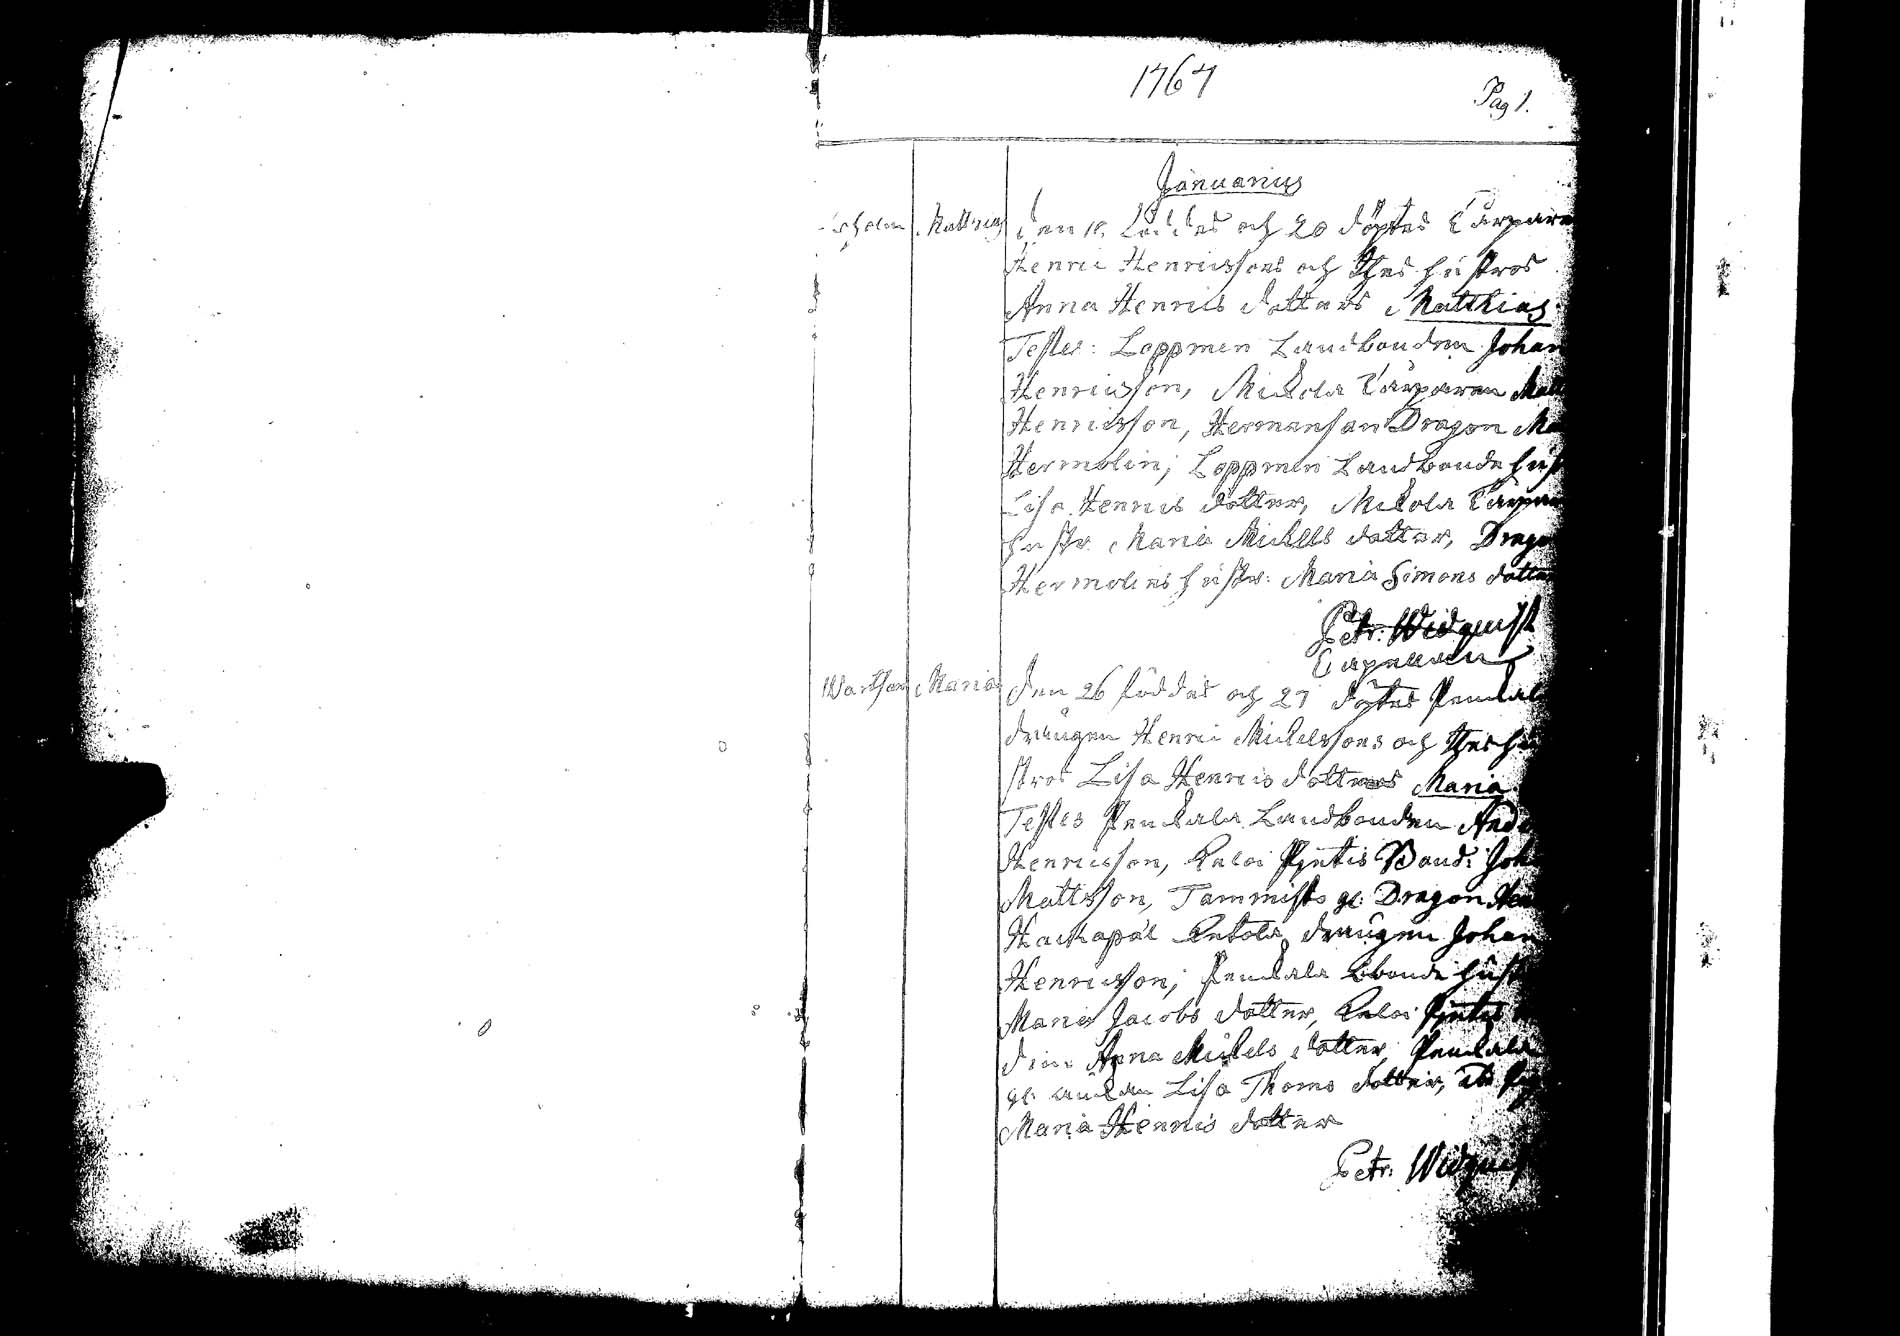 1767
Pag 1.
Januarius
Matthias den 18. föddes och 20 döptes Torpare
Henric Henricssons och thes hustros
Anna Henrics dotters Matthias
Testes: Loppmen Landbonden Johan
Henricsson, Mickola Torparen Matt
Henricsson, Hermansan Dragon Ma
Hermolin; Loppmen Landbonde hust
Lisa Henrics dotter, Mickola Torpare
hustr. Maria Mickels dotter, Drago
Hermolins hustr: Maria Simons dotter
Petr: Widquist
Capellan
Maria den 26 föddes och 27 döptes
drängen Henric Mickelssons och thes hu
stros Lisa Henrics dotters Maria
Testes Landbonden Ande
Henricsson, Bond: Joha
Mattsson, Tammisto gl. Dragon Hen
drängen Johan
Henricsson; Lbonde hust
Maria Jacobs dotter,
Anna Mickels dotter,
gl. änkan Lisa Thoms dotter,
Maria Henrics dotter
Petr: Widquist